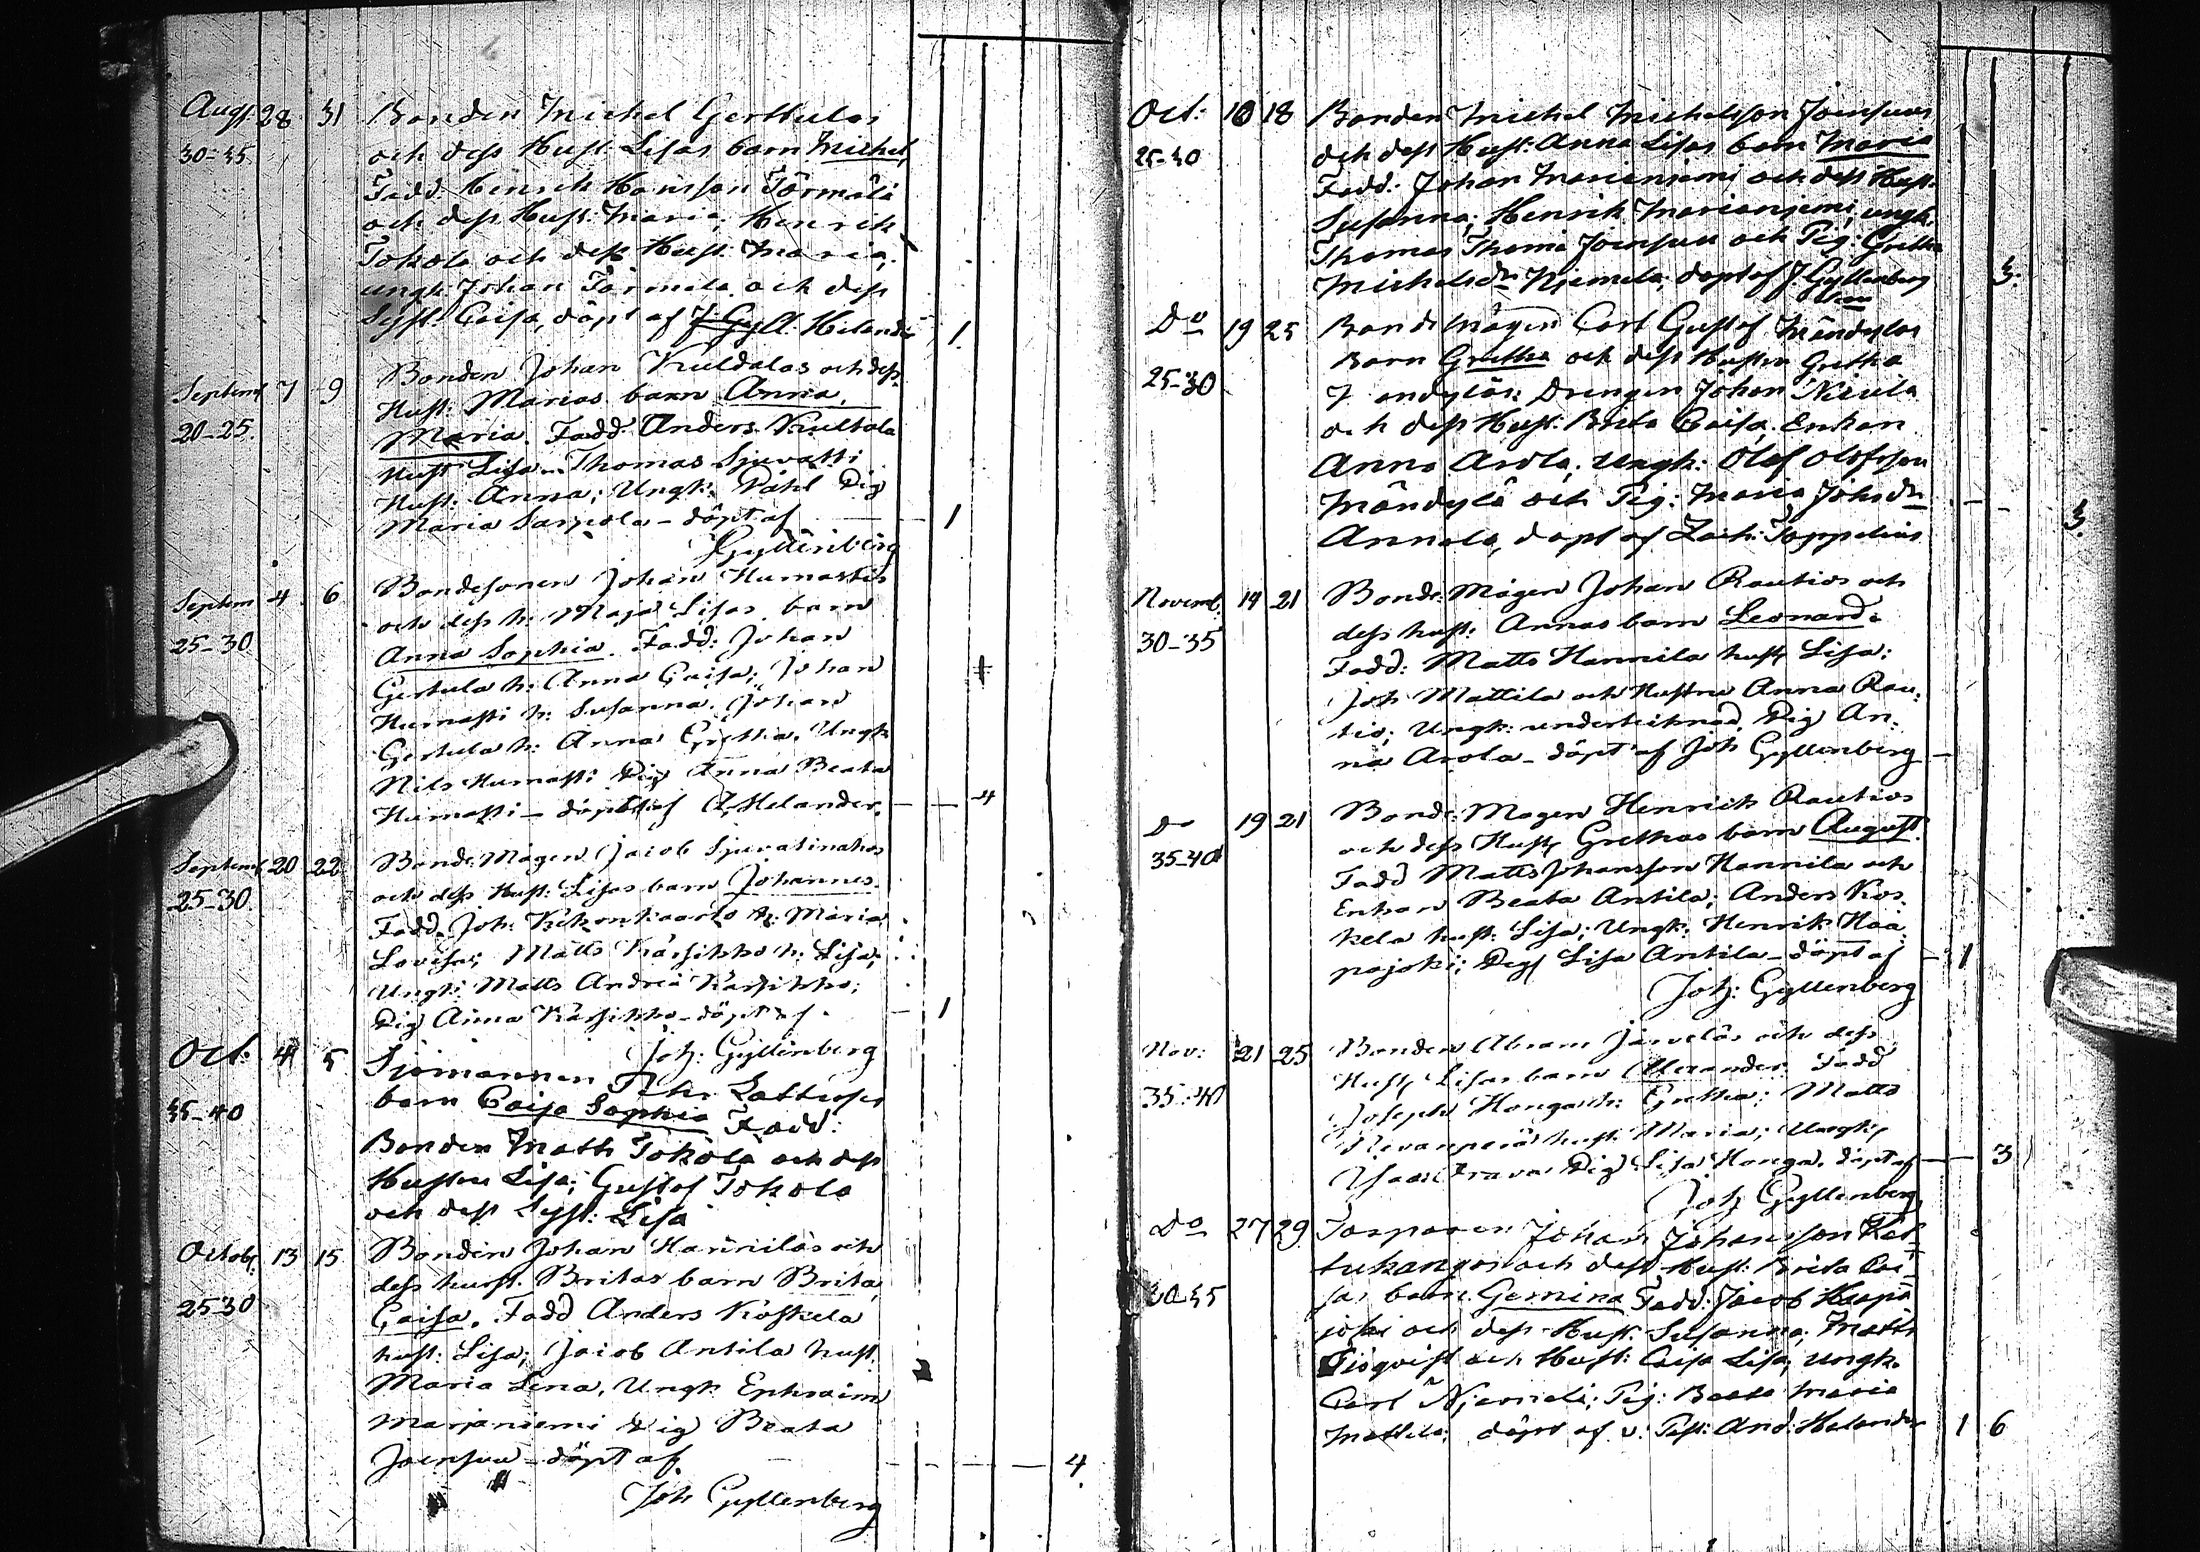 Aug: 28 31 Bonden Michel Gerttulas
30-35 och dess Hust: Lisas barn Michel,
Fadd. Henrik Hansson Törmälä
och dess Hust: Maria; Henrik
Tokola och dess Hust: Maria,
ungk. Johan Törmälä och dess
Syst: Caisa, döpt af J. Gyll. Helander 1
Septemb 7 9 Bonden Johan Kuldalas och dess
Hust: Marias barn Anna,
20-25. Maria. Fadd: Anders Kultala
Hust Lisa. Thomas Sjuvatti
Hust: Anna; Ungk: Påhl Pig
Maria Sarpola - döpt af 1
Gyllenberg
Septem 4 6 Bondesonen Johan Humastis
och dess h: Maja Lisas barn
25-30 Anna Sophia. Fadd: Johan
Gertula h: Anna Caisa; Johan
Humasti h: Susanna. Johan
Gertula h: Anna Gretha, Ungk
Nils Humasti Pig Anna Beata
Humasti - döpt af A. Helander. 4
Septemb 20 22 Bonde Mågen Jacob Sjuvatinahos
och dess Hust: Lisas barn Johannes.
25-30. Fadd. Joh: Kekonkaarto h: Maria
Lovisa; Matts Karsikko h: Lisa;
Ungk: Matts Andreä Karsikko;
Pig Anna Karsikko - döpt af 1
Joh: Gyllenberg
Oct: 4 5 Sjömannen Petr Lattuses
35-40 barn Caisa Sophia Fadd:
Bonden Matts Tokola och dess
Hustru Lisa; Gustaf Tokola
och dess Syst: Lisa
Octob: 13 15 Bonden Johan Hannilas och
dess hust. Britas barn Brita
25-30 Caisa. Fadd Anders Koskela
hust: Lisa; Jacob Antila hust.
Maria Lena, Ungk Ephraim
Marjaniemi Pig Beata
Joensuu - döpt af 4
Joh Gyllenberg
Oct: 10 18 Bonden Michel Michelsson Joensuus
25-30 och dess Hust: Anna Lisas barn Maria
Fadd: Johan Marianiemi och dess Hust.
Susanna; Henrik Marianiemi, ungk.
Thomas Thome Joensuu och Pig: Gretha
Michelsdr Njemelä, döpt af J. Gyllenberg 3.
Do 19 25 Bonde Mågen Carl Gustaf Mändyläs
25-30 Barn Gretha och dess Hustru Gretha
Drengen Johan Nicula
och dess Hust: Brita Caisa, Enkan
Anna Arola, Ungk: Olof Olofsson
Mändylä och Pig: Maria Johsdr
Annala, döpt af Zach: Toppelius 3.
Novemb. 19 21 Bonde Mågen Johan Rautios och
30-35 dess hust: Annas barn Leonard.
Fadd: Matts Hannila hust Lisa;
Joh Mattila och Hustru Anna Rau-
tio, Ungk: underteknad Pig An-
na Arola - döpt af Joh Gyllenberg
Do 19 21 Bonde Mågen Henrich Rautios
35-40 och dess Hust Grethas barn August.
Fadd Matts Johansson Hannila och
Enkan Beata Antila; Anders Kos-
kela hust: Lisa; Ungk: Henrik Haa-
pajoki; Pig Lisa Antila - döpt af 1
Joh: Gyllenberg
Nov: 21 25 Bonden Abram Järveläs och dess
35-40 Hust Lisas barn Alexander. Fadd
Joseph Honga h: Gretha; Matts
Nevanperä hust: Maria; Ungk
Isaac Prava Pig Lisa Honga, döpt af 3
Joh Gyllenberg
Do 27 29 Torparen Johan Johansson Kal-
30-35 tukangas och dess Hust: Brita Cai-
sas barn Gemina Fadd: Jacob Haapa-
joki och dess Hust: Susanna; Matts
Hust: Caisa Lisa; Ungk.
Carl Njemelä; Pig: Beata Maria
Mattila; döpt af v: Past: And: Helander 1 6